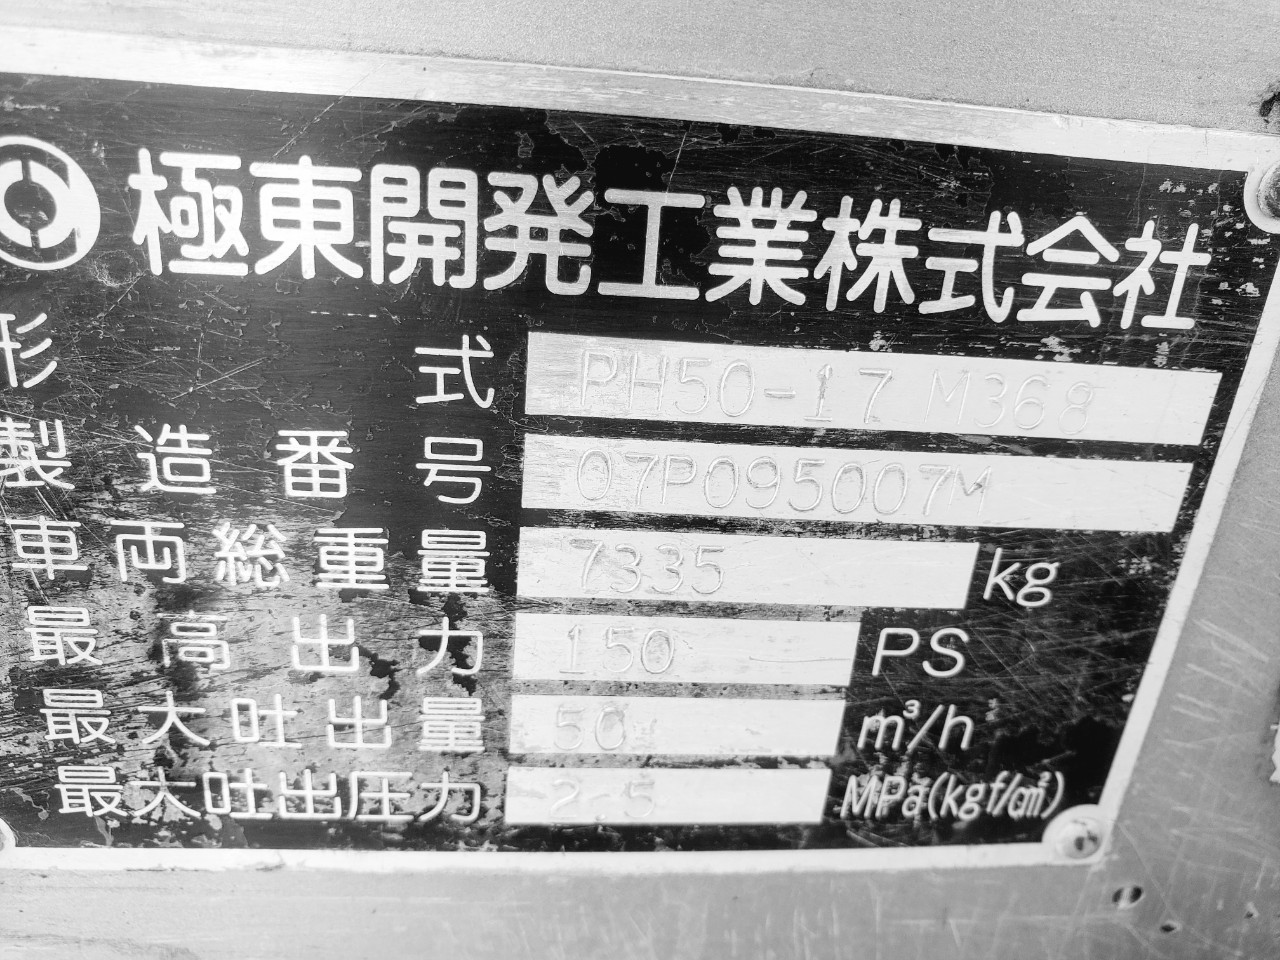 極東開発工業株式会社
形式 PH50-17 M368
製造番号 07P095007M
車両総重量 7335 kg
最高出力 150 PS
最大吐出量 50 m³/h
最大吐出圧力 2.5 MPa(kgf/c㎡)